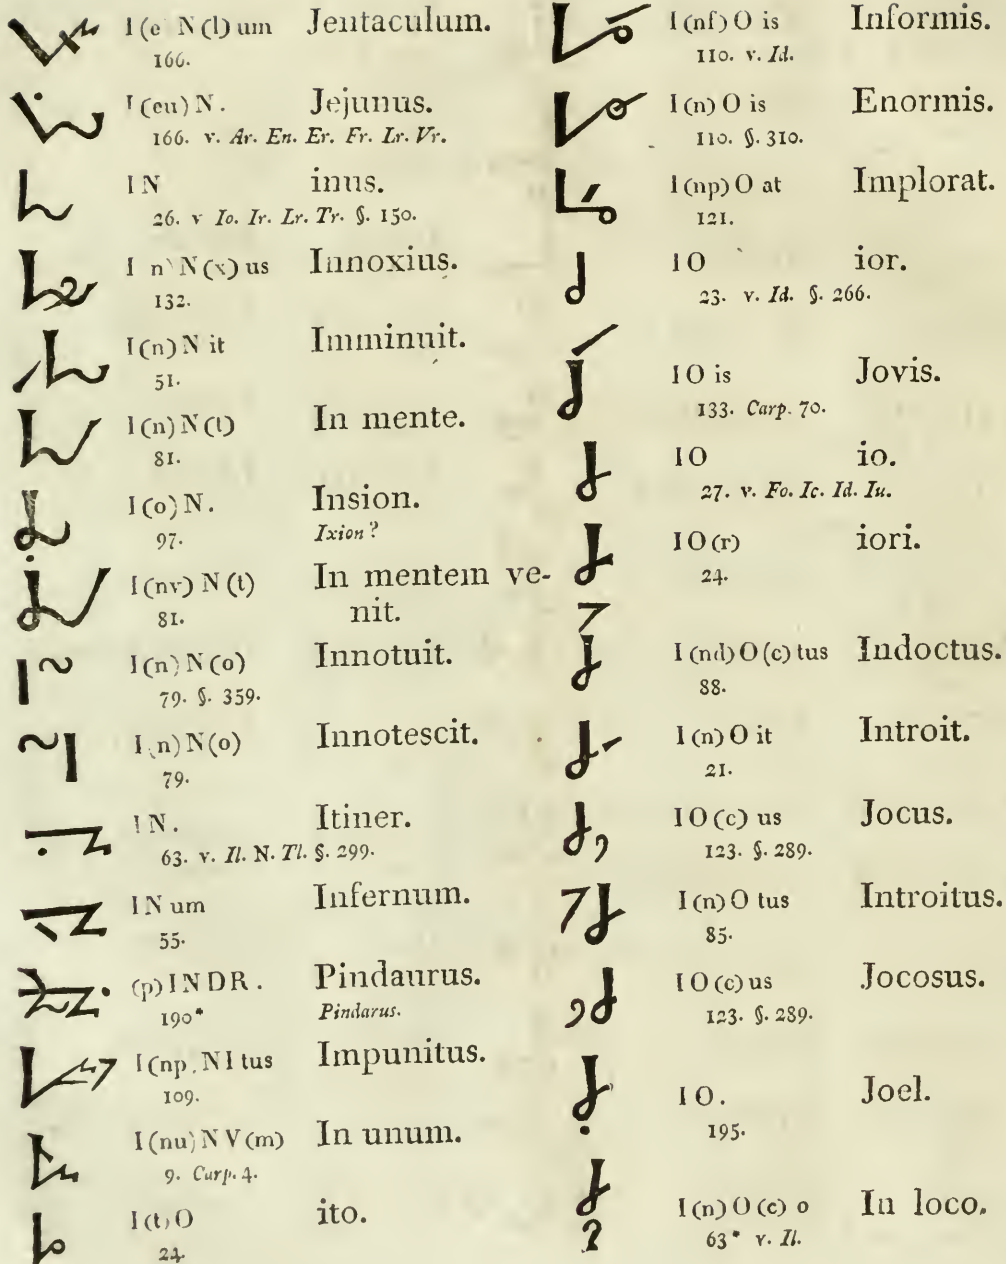 I(e N(l)um Jentaculum.
166.
I(eu)N. Jejunus.
166. v. Ar. En. Er. Fr. Lr. Vr.
IN inus.
26. v Io. Ir. Lr. Tr. §. 150.
I n) N(x)us Innoxius.
132.
I(n)N it Imminuit.
51.
I(n)N(t) In mente.
81.
I(o)N. Insion.
97. Ixion?
I(nv)N(t) In mentem ve-
81. nit.
I(n)N(o) Innotuit.
79. §. 359.
I(n)N(o) Innotescit.
79.
IN. Itiner.
63. v. Il. N. Tl. §. 299.
IN um Infernum.
55.
(p)INDR. Pindaurus.
190* Pindarus.
I(np.NI tus Impunitus.
109.
I(nu)NV(m) In unum.
9. Carp. 4.
I(t)O ito.
24.
I(nf)O is Informis.
110. v. Id.
I(n)O is Enormis.
110. §. 310.
I(np)O at Implorat.
121.
IO ior.
23. v. Id. §. 266.
IO is Jovis.
133. Carp. 70.
IO io.
27. v. Fo. Ic. Id. Iu.
IO(r) iori.
24.
I(nd)O(c)tus Indoctus.
88.
I(n)O it Introit.
21.
IO(c)us Jocus.
123. §. 289.
I(n)O tus Introitus.
85.
IO(c)us Jocosus.
123. §. 289.
IO. Joel.
195.
I(n)O(c)o In loco.
63* v. Il.